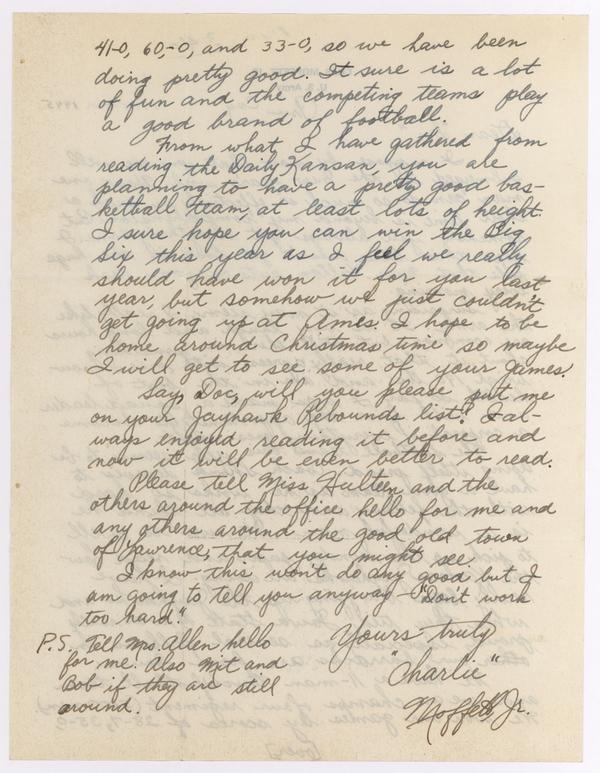 41-0, 60-0, and 33-0, so we have been
doing pretty good. It sure is a lot
of fun and the competing teams play
a good brand of football.
From what I have gathered from
reading the Daily Kansan, you are
planning to have a pretty good bas-
ketball team, at least lots of height.
I sure hope you can win the Big
Six this year as I feel we really
should have won it for you last
year, but somehow we just couldn't
get going up at Ames. I hope to be
home around Christmas time so maybe
I will get to see some of your games.
Say, Doc, will you please put me
on your Jayhawk Rebounds list? I al-
ways enjoyed reading it before and
now it will be even better to read.
Please tell Miss Hulteen and the
others around the office hello for me and
any others around the good old town
of Lawrence, that you might see.
I know this won't do any good but I
am going to tell you anyway - "Don't work
too hard."
Yours truly
"Charlie"
Moffett Jr.
P.S. Tell Mrs. Allen hello
for me! Also Mit and
Bob if they are still
around.